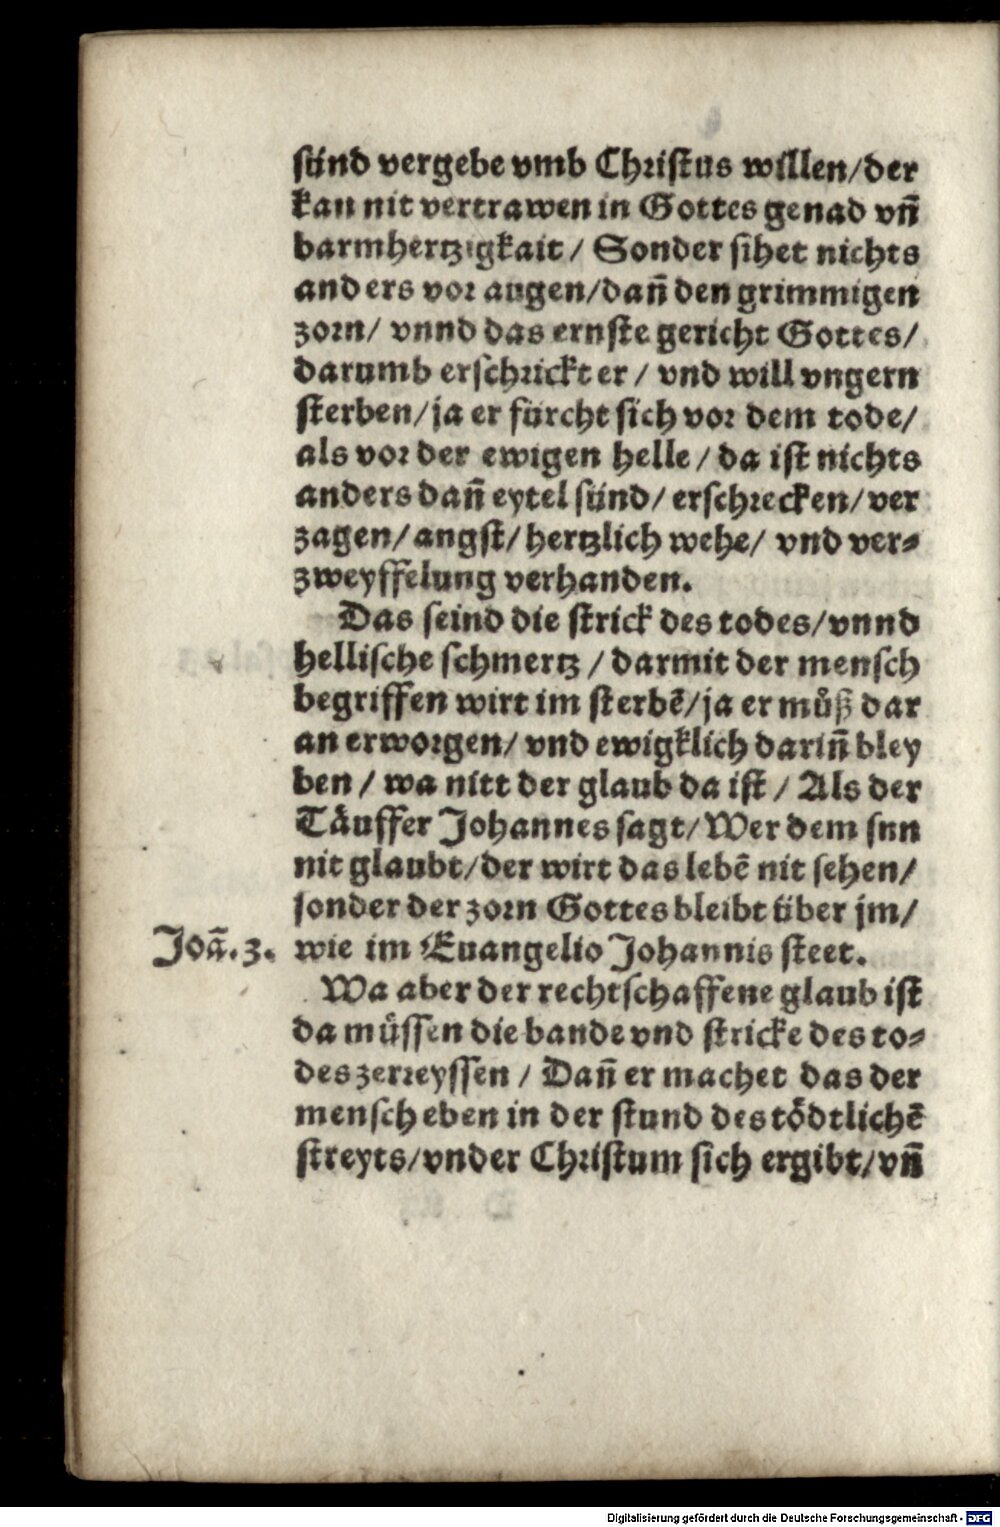 sünd vergebe vmb Christus willen/der
kan nit vertrawen in Gottes genad vñ
barmhertzigkait / Sonder sihet nichts
anders vor augen/dañ den grimmigen
zorn/ vnnd das ernste gericht Gottes/
darumb erschrickt er / vnd will vngern
sterben/ja er fürcht sich vor dem tode/
als vor der ewigen helle / da ist nichts
anders dañ eytel sünd/ erschrecken/ ver
zagen/ angst/ hertzlich wehe/ vnd ver⸗
zweyffelung verhanden.
Das seind die strick des todes/vnnd
hellische schmertz / darmit der mensch
begriffen wirt im sterbẽ/ja er můß dar
an erworgen/ vnd ewigklich dariñ bley
ben / wa nitt der glaub da ist / Als der
Täuffer Johannes sagt/ Wer dem sun
nit glaubt/der wirt das lebẽ nit sehen/
sonder der zorn Gottes bleibt über jm/
Joã.3. wie im Euangelio Johannis steet.
Wa aber der rechtschaffene glaub ist
da müssen die bande vnd stricke des to⸗
des zerreyssen / Dañ er machet das der
mensch eben in der stund des tödtlichẽ
streyts/vnder Christum sich ergibt/vñ
Digitalisierung gefördert durch die Deutsche Forschungsgemeinschaft - DFG